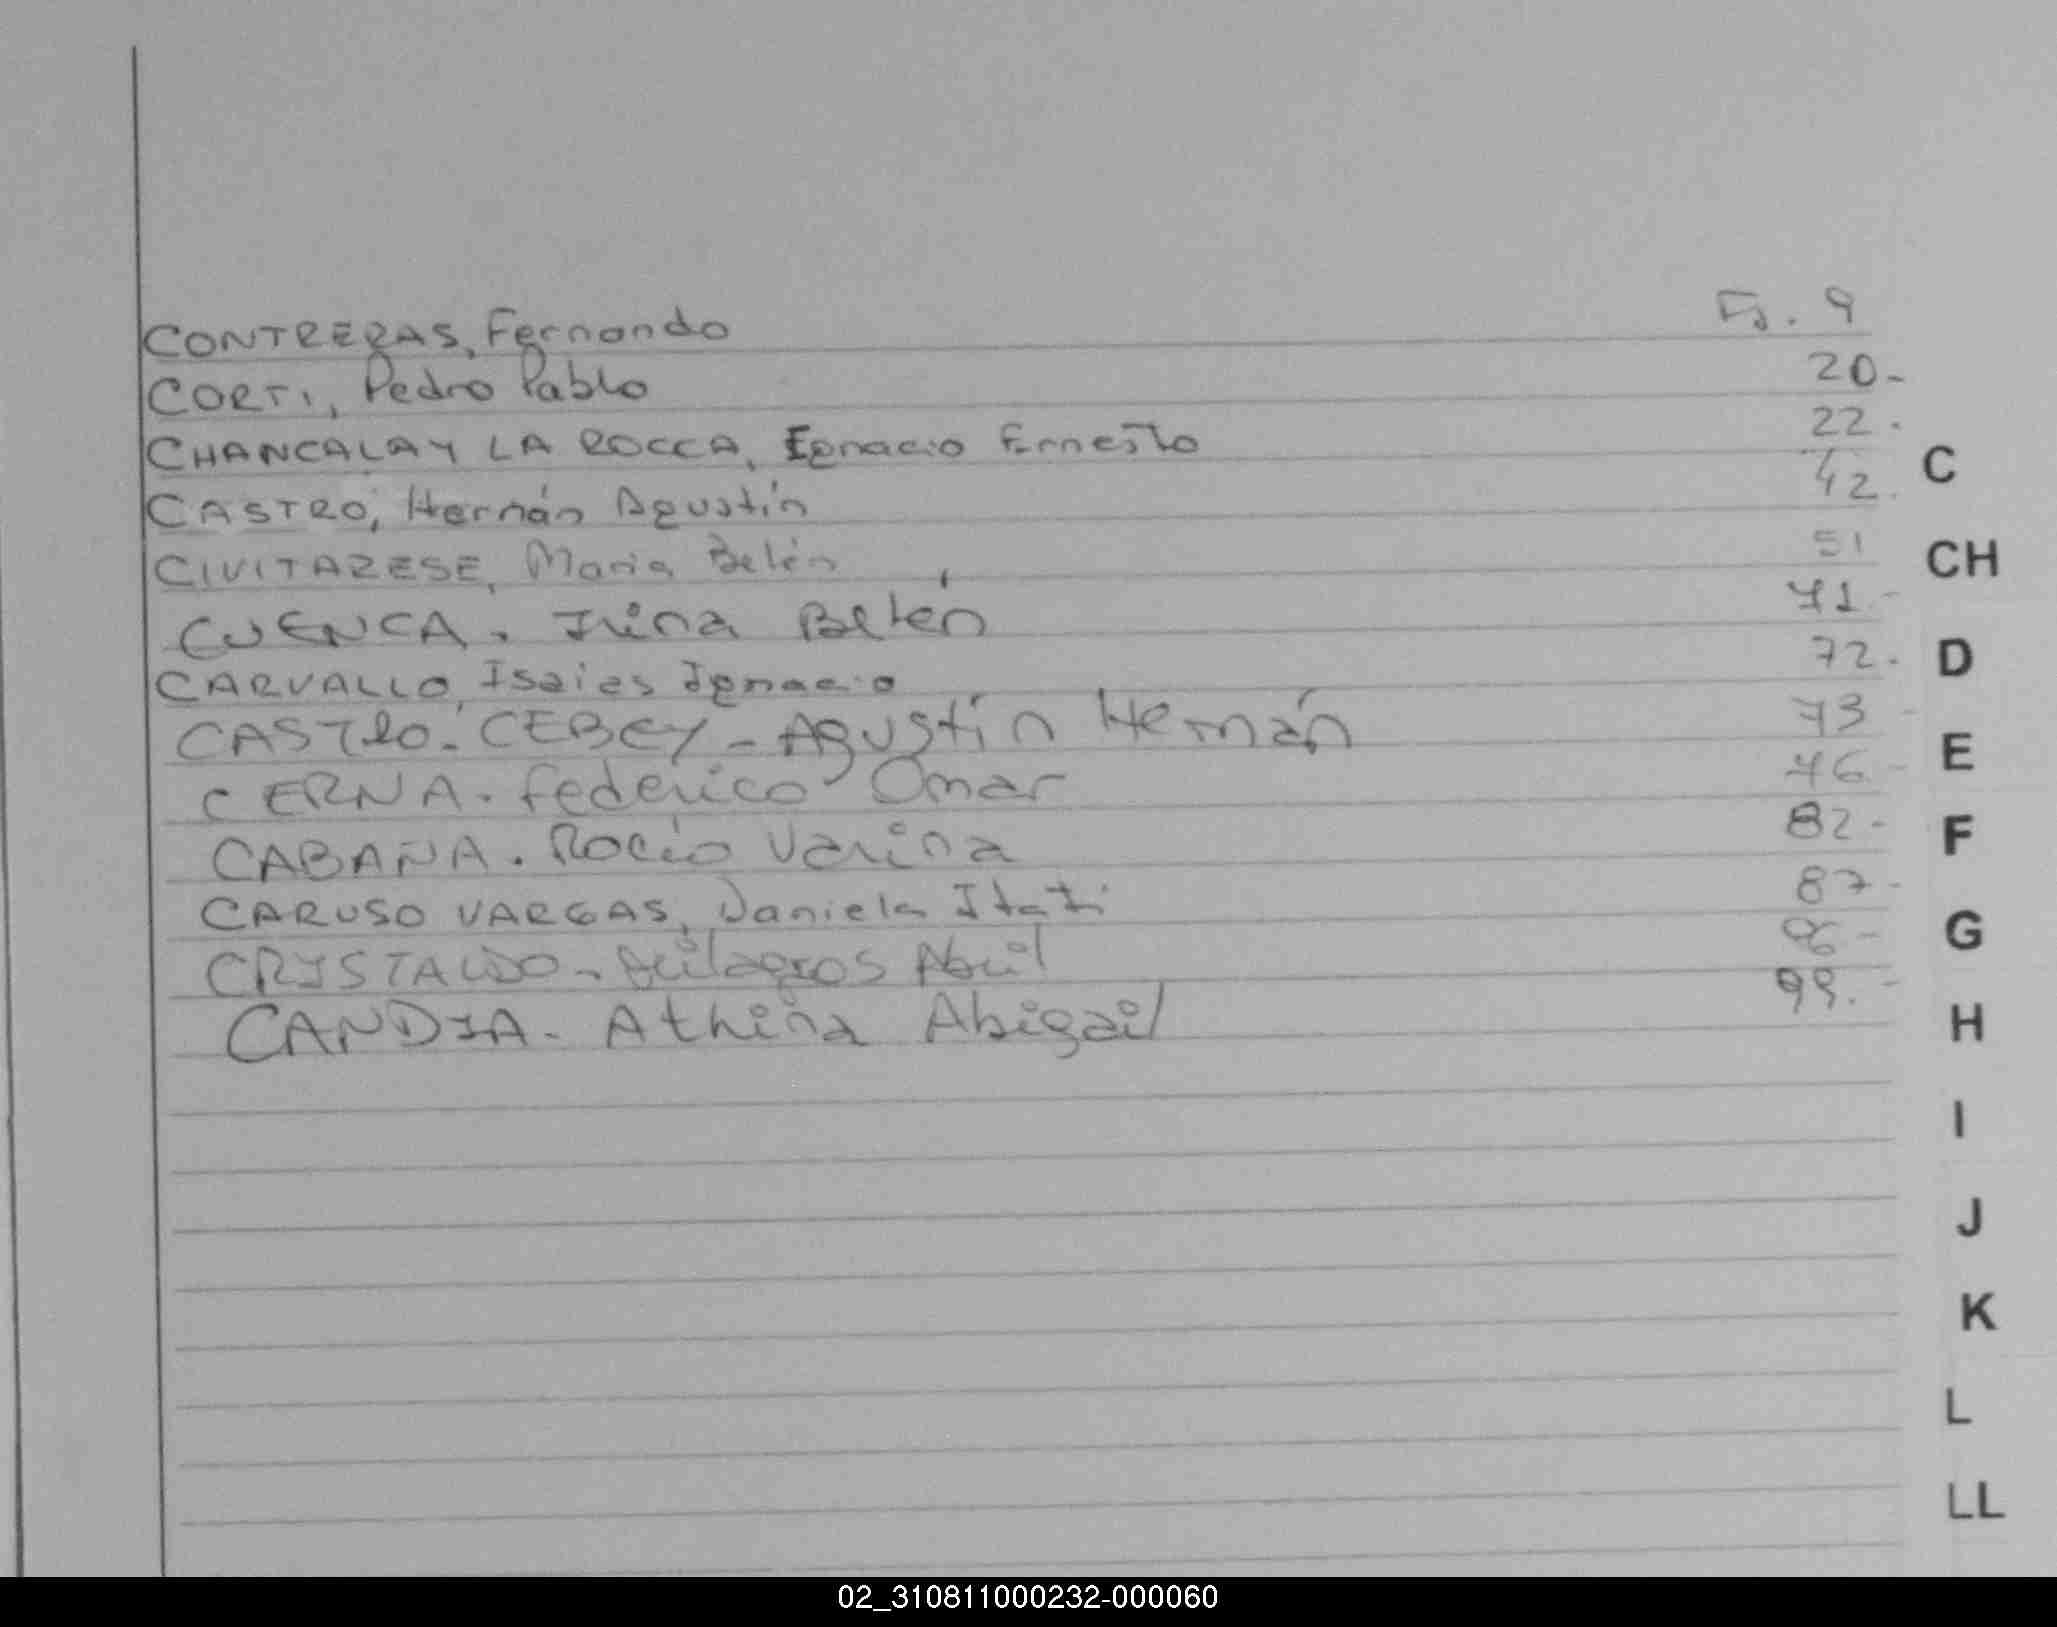 CONTRERAS, Fernando Fj. 9
CORTI, Pedro Pablo 20-
CHANCALAY LA ROCCA, Ignacio Ernesto 22.
CASTRO, Hernán Agustín 42.
CIVITARESE, Maria Belén 51
CUENCA. Irina Belén 71-
CARVALLO, Isaies Ignacio 72.
CASTRO-CEBEY-Agustín Hernán 73-
CERNA. Federico Omar 76-
CABAÑA. Rocío Varina 82-
CARUSO VARGAS, Daniela Itatí 87-
CRISTALDO- Milagros Abril 96-
CANDIA- Athina Abigail 99.-
C
CH
D
E
F
G
H
I
J
K
L
LL
02_310811000232-000060